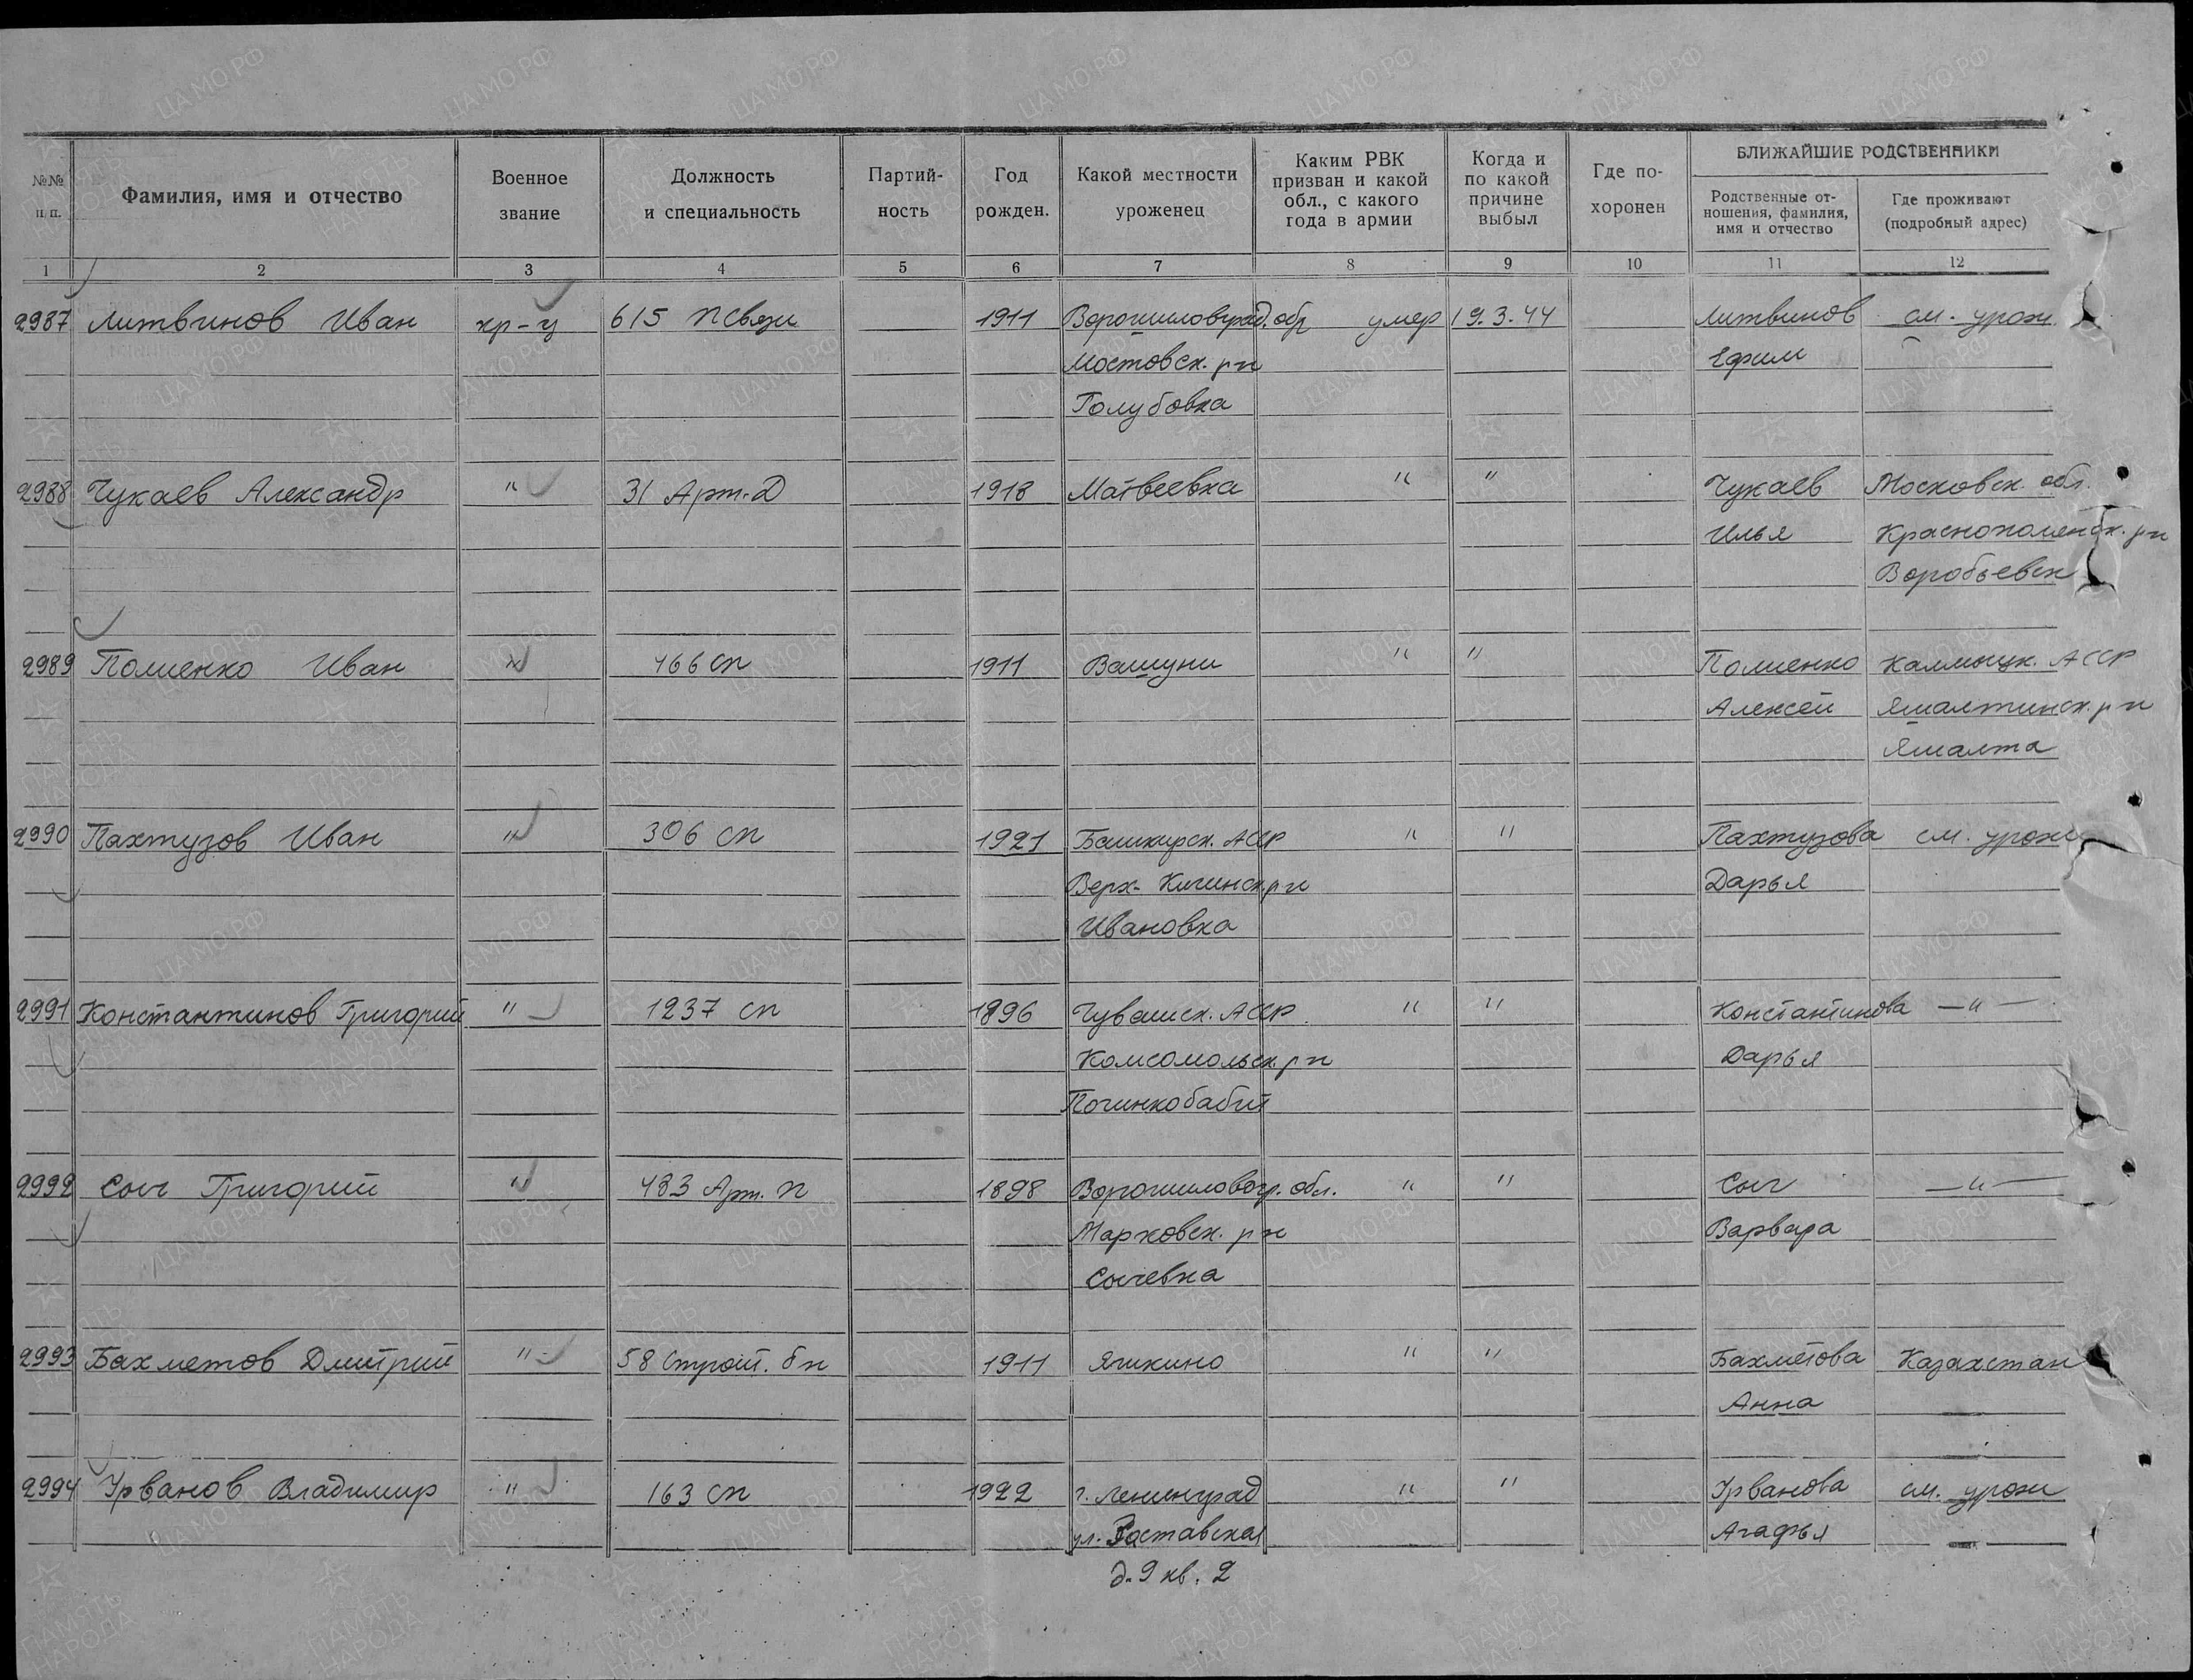 №№ п/п.
Фамилия, имя и отчество
Военное звание
Должность и специальность
Партий-ность
Год рожден.
Какой местности уроженец
Каким РВК призван и какой обл., с какого года в армии
Когда и по какой причине выбыл
Где по-хоронен
БЛИЖАЙШИЕ РОДСТВЕННИКИ
Родственные от-ношения, фамилия, имя и отчество
Где проживают (подробный адрес)
1 2 3 4 5 6 7 8 9 10 11 12
2987 Литвинов Иван кр-ц 615 п связи 1911 Ворошиловград. обл умер 19.3.44 Литвинов см. урож.
Мостовск. р-н Ефим
Голубовка
2988 Чукаев Александр " 31 Арт. Д 1918 Матвеевка " " Чукаев Московск. обл.
Илья Краснополянск. р-н
Воробьевск
2989 Полиенко Иван " 466 сп 1911 Вашуни " " Полиенко Калмыцк. АССР
Алексей Яшалтинск. р-н
Яшалта
2990 Пахтузов Иван " 306 сп 1921 Башкирск. АССР " " Пахтузова см. урож
Верх-Кигинск р-н Дарья
Ивановка
2991 Константинов Григорий " 1237 сп 1896 Чувашск. АССР " " Константинова —"—
Комсомольск. р-н Дарья
Починкобабит
2992 Сыч Григорий " 483 Арт. п 1898 Ворошиловогр. обл. " " Сыч —"—
Марковск. р-н Варвара
Сычевка
2993 Бахметов Дмитрий " 58 строит. бн 1911 Ячикино " " Бахметова Казахстан
Анна
2994 Урванов Владимир " 163 сп 1922 г. Ленинград " " Урванова см. урож
ул. Заставская Агафья
д. 9 кв. 2
ЦАМО РФ
ПАМЯТЬ НАРОДА